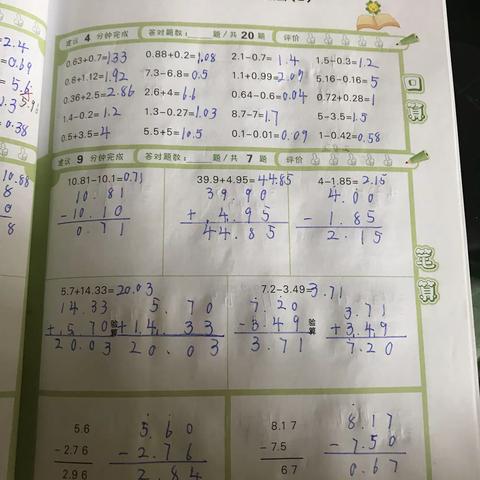 建议 4 分钟完成 答对题数: 题/共 20 题 评价
0.63+0.7=1.33 0.88+0.2=1.08 2.1-0.7=1.4 1.5-0.3=1.2
0.8+1.12=1.92 7.3-6.8=0.5 1.1+0.99=2.09 5.16-0.16=5
0.36+2.5=2.86 2.6+4=6.6 0.64-0.6=0.04 0.72+0.28=1
1.4-0.2=1.2 1.3-0.27=1.03 8.7-7=1.7 5-3.5=1.5
0.5+3.5=4 5.5+5=10.5 0.1-0.01=0.09 1-0.42=0.58
口算
建议 9 分钟完成 答对题数: 题/共 7 题 评价
10.81-10.1=0.71 39.9+4.95=44.85 4-1.85=2.15
10.81 39.90 4.00
-10.10 +4.95 -1.85
0.71 44.85 2.15
笔算
5.7+14.33=20.03 7.2-3.49=3.71
14.33 5.70 7.20 3.71
+5.70 验算 +14.33 -3.49 验算 +3.49
20.03 20.03 3.71 7.20
5.6 5.60 8.17 8.17
-2.76 -2.76 -7.5 -7.50
2.96 2.84 67 0.67
2.4
0.69
5.6
5.9
0.38
10.88
8
0
8